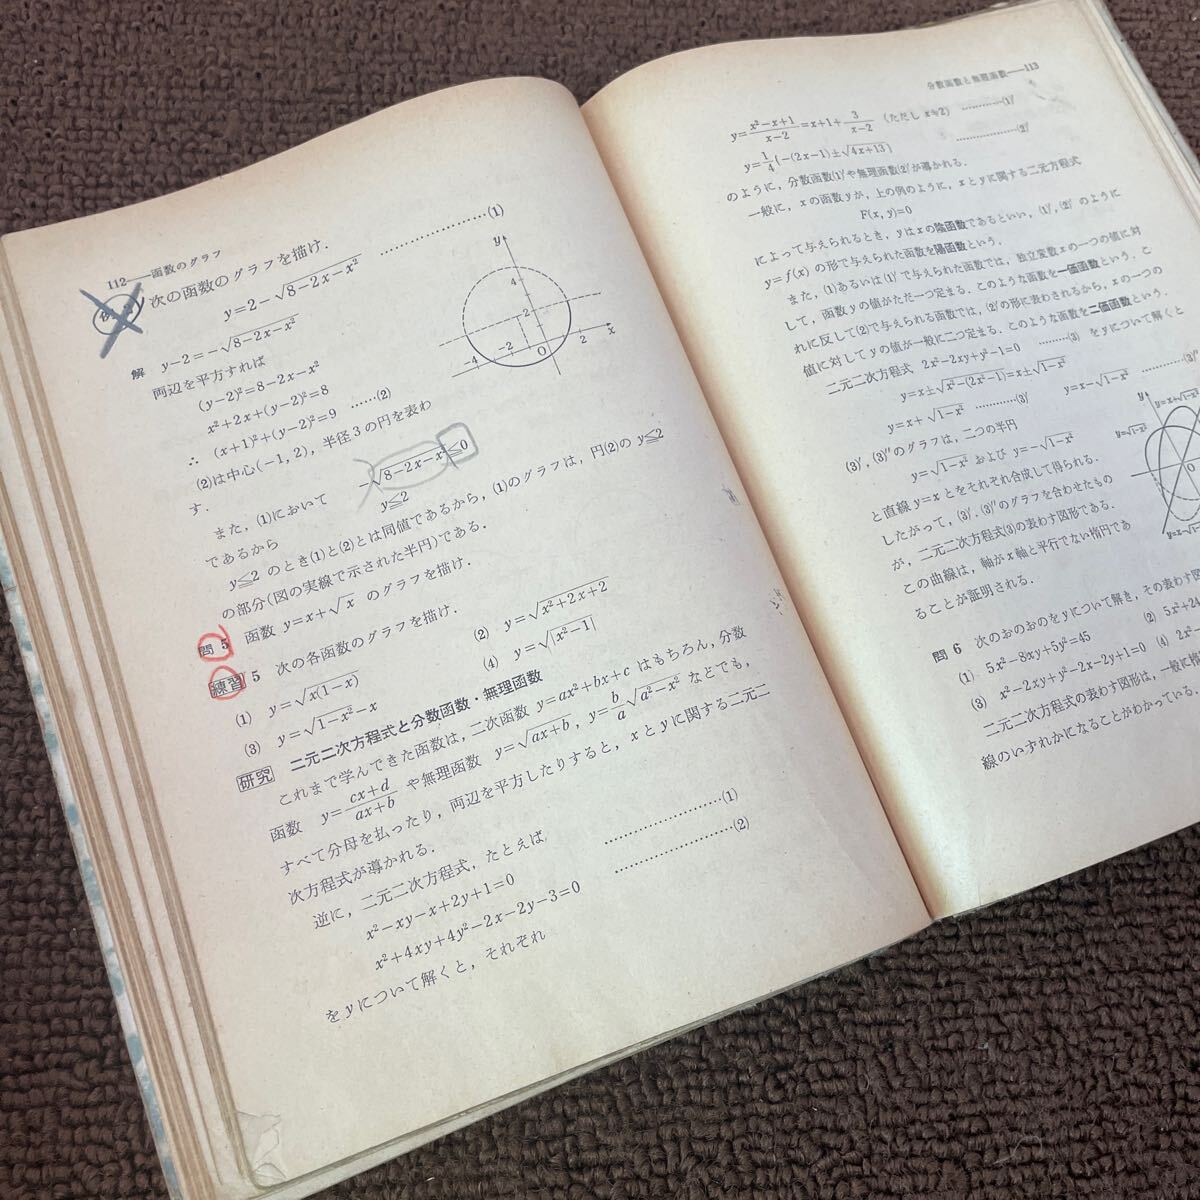 112——函数のグラフ
次の函数のグラフを描け.
y=2-√8-2x-x² ……………(1)
解 y-2=-√8-2x-x²
両辺を平方すれば
(y-2)²=8-2x-x²
x²+2x+(y-2)²=8
∴ (x+1)²+(y-2)²=9 ……(2)
(2)は中心(-1, 2), 半径3の円を表わ
す.
また, (1)において -√8-2x-x²≦0
であるから y≦2
y≦2 のとき(1)と(2)とは同値であるから, (1)のグラフは, 円(2)の y≦2
の部分(図の実線で示された半円)である.
問 5 函数 y=x+√x のグラフを描け.
練習 5 次の各函数のグラフを描け.
(1) y=√x(1-x) (2) y=√x²+2x+2
(3) y=√1-x²-x (4) y=√|x²-1|
研究 二元二次方程式と分数函数・無理函数
これまで学んできた函数は, 二次函数 y=ax²+bx+c はもちろん, 分数
函数 y=cx+d/ax+b や無理函数 y=√ax+b, y=b/a√a²-x² などでも,
すべて分母を払ったり, 両辺を平方したりすると, xとyに関する二元二
次方程式が導かれる.
逆に, 二元二次方程式, たとえば
x²-xy-x+2y+1=0 ……………(1)
x²+4xy+4y²-2x-2y-3=0 ……………(2)
をyについて解くと, それぞれ
y
4
2
-4
-2
O
2
x
分数函数と無理函数——113
y=x²-x+1/x-2=x+1+3/x-2 (ただし x≠2) …………(1)′
y=1/4{-(2x-1)±√4x+13} …………(2)′
のように, 分数函数(1)′や無理函数(2)′が導かれる.
一般に, xの函数yが, 上の例のように, xとyに関する二元方程式
F(x, y)=0
によって与えられるとき, yはxの陰函数であるといい, (1)′, (2)′ のように
y=f(x) の形で与えられた函数を陽函数という.
また, (1)あるいは(1)′で与えられた函数では, 独立変数xの一つの値に対
して, 函数yの値がただ一つ定まる. このような函数を一価函数という. こ
れに反して(2)で与えられる函数では, (2)′の形に表わされるから, xの一つの
値に対してyの値が一般に二つ定まる. このような函数を二価函数という.
二元二次方程式 2x²-2xy+y²-1=0 ………(3) をyについて解くと
y=x±√x²-(2x²-1)=x±√1-x²
y=x+√1-x² …………(3)′ y=x-√1-x² ………(3)″
(3)′, (3)″のグラフは, 二つの半円
y=√1-x² および y=-√1-x²
と直線y=xとをそれぞれ合成して得られる.
したがって, (3)′, (3)″のグラフを合わせたもの
が, 二元二次方程式(3)の表わす図形である.
この曲線は, 軸がx軸と平行でない楕円であ
ることが証明される.
y
y=x+√1-x²
y=√1-x²
問 6 次のおのおのをyについて解き, その表わす図
(1) 5x²-8xy+5y²=45 (2) 5x²+24
(3) x²-2xy+y²-2x-2y+1=0 (4) 2x²-
二元二次方程式の表わす図形は, 一般に
線のいずれかになることがわかっている.